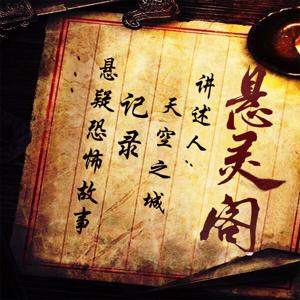 悬灵阁
讲述人：
天空之城
记录
悬疑恐怖故事
...